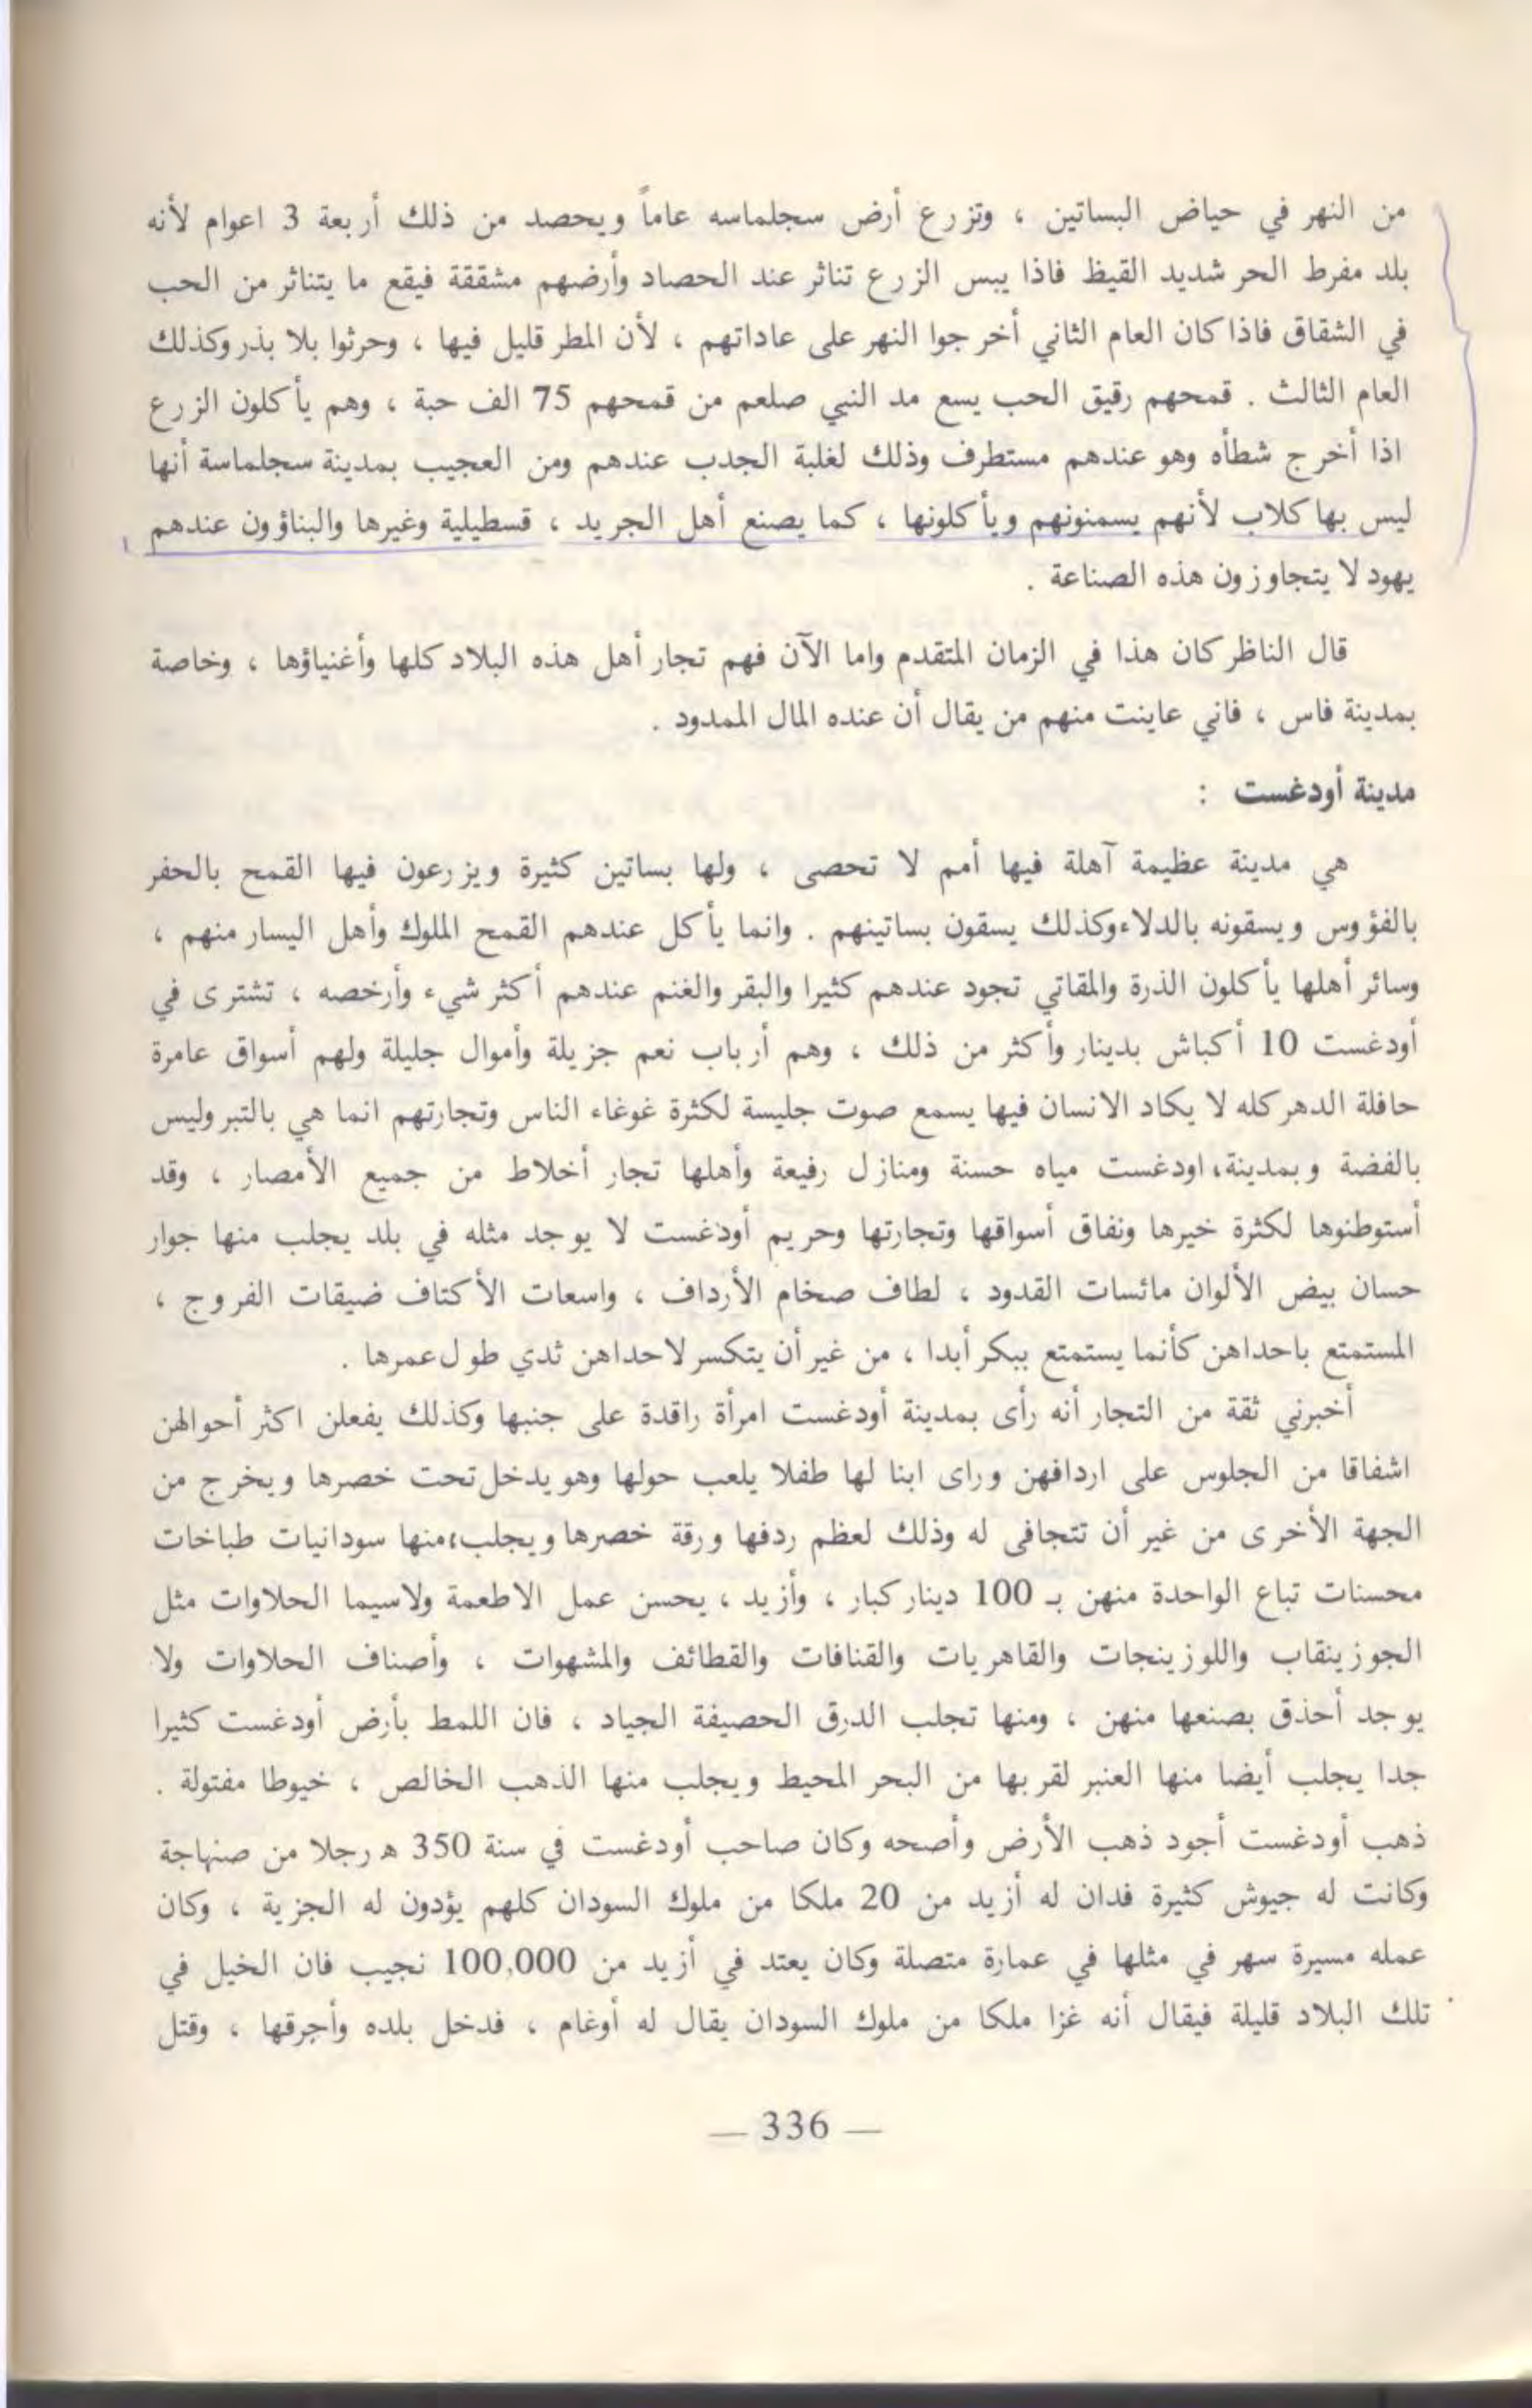 من النهر في حياض البساتين ، وتزرع أرض سجلماسه عاماً ويحصد من ذلك أربعة 3 اعوام لأنه
بلد مفرط الحر شديد القيظ فاذا يبس الزرع تناثر عند الحصاد وأرضهم مشققة فيقع ما يتناثر من الحب
في الشقاق فاذا كان العام الثاني أخرجوا النهر على عاداتهم ، لأن المطر قليل فيها ، وحرثوا بلا بذر وكذلك
العام الثالث . قمحهم رقيق الحب يسع مد النبي صلعم من قمحهم 75 الف حبة ، وهم يأكلون الزرع
اذا أخرج شطأه وهو عندهم مستطرف وذلك لغلبة الجدب عندهم ومن العجيب بمدينة سجلماسة أنها
ليس بها كلاب لأنهم يسمنونهم ويأكلونها ، كما يصنع أهل الجريد ، قسطيلية وغيرها والبناؤون عندهم
يهود لا يتجاوزون هذه الصناعة .
قال الناظر كان هذا في الزمان المتقدم واما الآن فهم تجار أهل هذه البلاد كلها وأغنياؤها ، وخاصة
بمدينة فاس ، فاني عاينت منهم من يقال أن عنده المال الممدود .
مدينة أودغست :
هي مدينة عظيمة آهلة فيها أمم لا تحصى ، ولها بساتين كثيرة ويزرعون فيها القمح بالحفر
بالفؤوس ويسقونه بالدلاء وكذلك يسقون بساتينهم . وانما يأكل عندهم القمح الملوك وأهل اليسار منهم ،
وسائر أهلها يأكلون الذرة والمقاتي تجود عندهم كثيرا والبقر والغنم عندهم أكثر شيء وأرخصه ، تشترى في
أودغست 10 أكباش بدينار وأكثر من ذلك ، وهم أرباب نعم جزيلة وأموال جليلة ولهم أسواق عامرة
حافلة الدهر كله لا يكاد الانسان فيها يسمع صوت جليسة لكثرة غوغاء الناس وتجارتهم انما هي بالتبر وليس
بالفضة وبمدينة، اودغست مياه حسنة ومنازل رفيعة وأهلها تجار أخلاط من جميع الأمصار ، وقد
أستوطنوها لكثرة خيرها ونفاق أسواقها وتجارتها وحريم أودغست لا يوجد مثله في بلد يجلب منها جوار
حسان بيض الألوان مائسات القدود ، لطاف صخام الأرداف ، واسعات الأكتاف ضيقات الفروج ،
المستمتع باحداهن كأنما يستمتع ببكر أبدا ، من غير أن يتكسر لاحداهن ثدي طول عمرها .
أخبرني ثقة من التجار أنه رأى بمدينة أودغست امرأة راقدة على جنبها وكذلك يفعلن اكثر أحوالهن
اشفاقا من الجلوس على اردافهن وراى ابنا لها طفلا يلعب حولها وهو يدخل تحت خصرها ويخرج من
الجهة الأخرى من غير أن تتجافى له وذلك لعظم ردفها ورقة خصرها ويجلب، منها سودانيات طباخات
محسنات تباع الواحدة منهن بـ 100 دينار كبار ، وأزيد ، يحسن عمل الاطعمة ولاسيما الحلاوات مثل
الجوزينقاب واللوزينجات والقاهريات والقنافات والقطائف والمشهوات ، وأصناف الحلاوات ولا
يوجد أحذق بصنعها منهن ، ومنها تجلب الدرق الحصيفة الجياد ، فان اللمط بأرض أودغست كثيرا
جدا يجلب أيضا منها العنبر لقربها من البحر المحيط ويجلب منها الذهب الخالص ، خيوطا مفتولة .
ذهب أودغست أجود ذهب الأرض وأصحه وكان صاحب أودغست في سنة 350 ه رجلا من صنهاجة
وكانت له جيوش كثيرة فدان له أزيد من 20 ملكا من ملوك السودان كلهم يؤدون له الجزية ، وكان
عمله مسيرة سهر في مثلها في عمارة متصلة وكان يعتد في أزيد من 100,000 نجيب فان الخيل في
تلك البلاد قليلة فيقال أنه غزا ملكا من ملوك السودان يقال له أوغام ، فدخل بلده وأجرقها ، وقتل
— 336 —